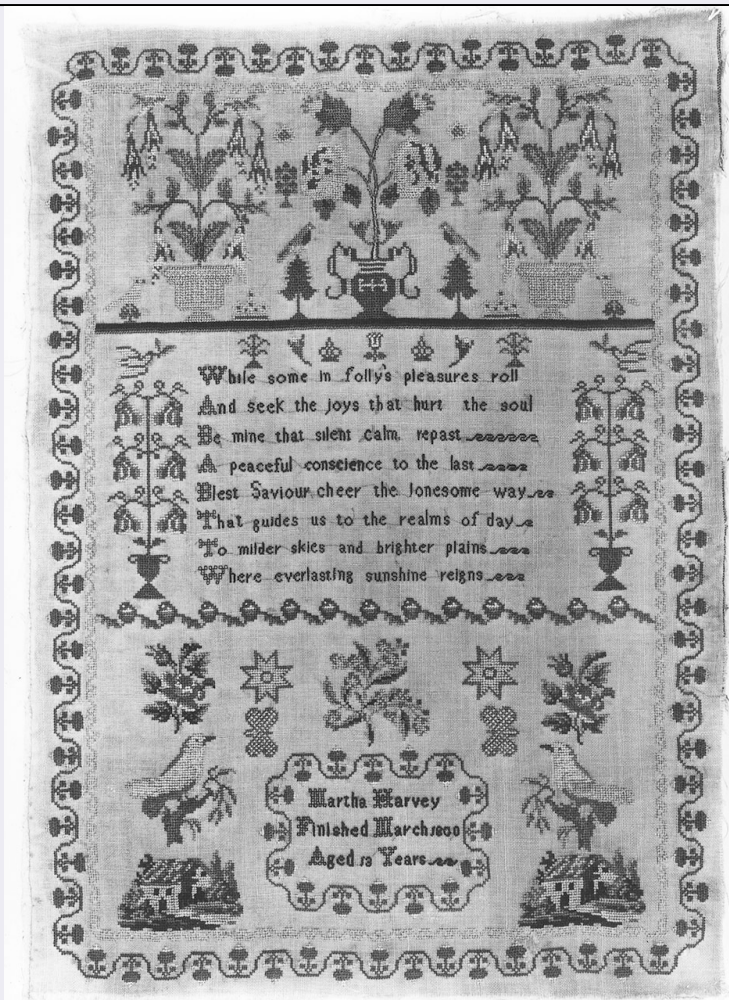 While some in folly's pleasures roll
And seek the joys that hurt the soul
Be mine that silent calm repast
A peaceful conscience to the last
Blest Saviour cheer the lonesome way
That guides us to the realms of day
To milder skies and brighter plains
Where everlasting sunshine reigns
Martha Harvey
Finished March 1800
Aged 13 Years